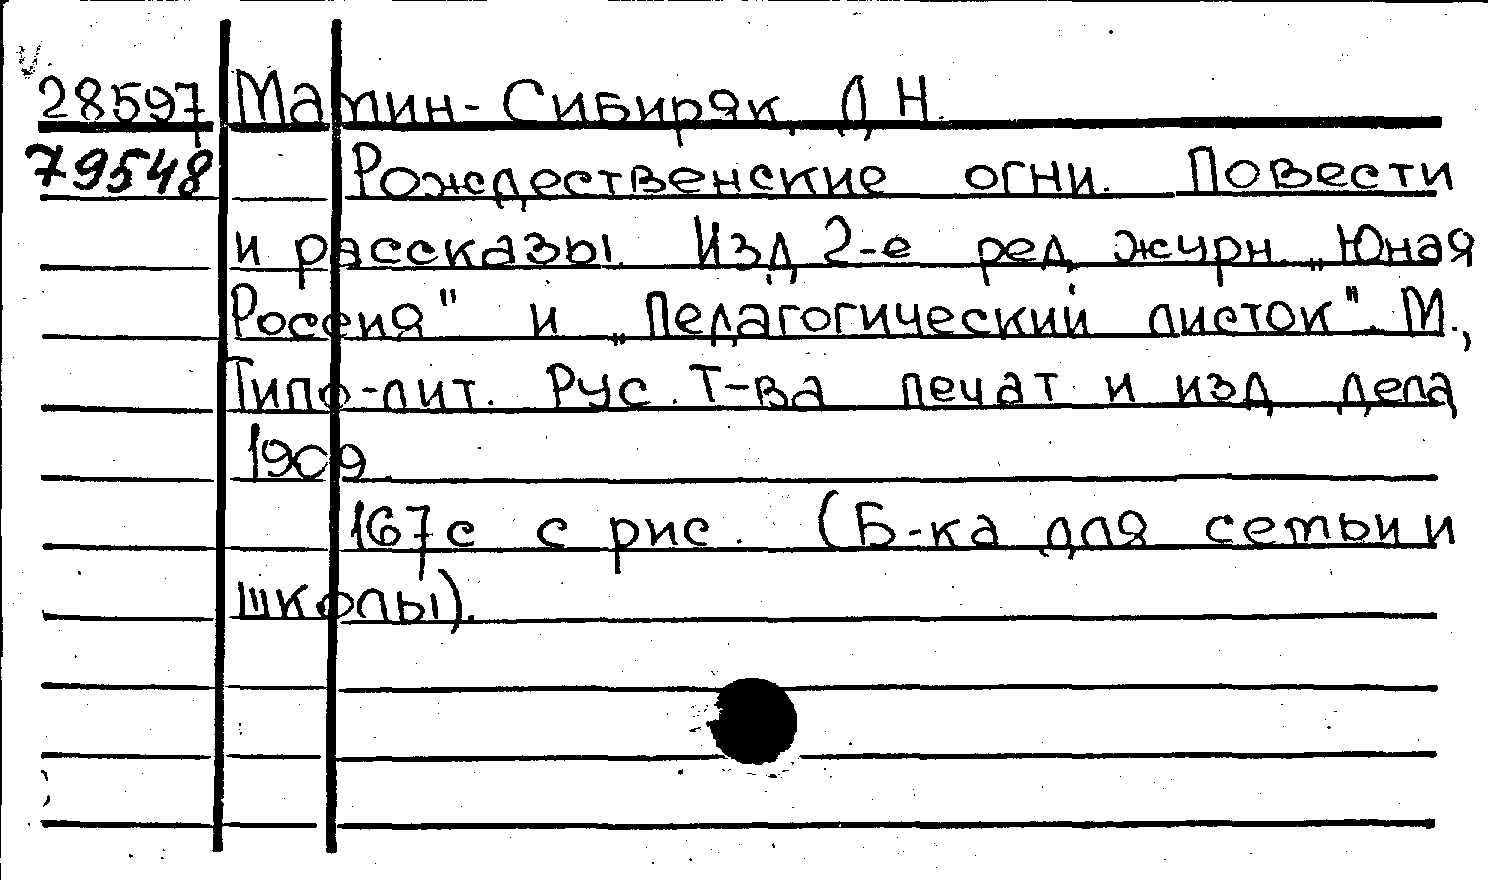 28597 Мамин-Сибиряк, Д.Н.
79548 Рождественские огни. Повести
и рассказы. Изд. 2-е ред. журн. „Юная
Россия" и „Педагогический листок". М.,
Типо-лит. Рус. Т-ва печат. и изд. дела
1909
167с с рис. (Б-ка для семьи и
школы).